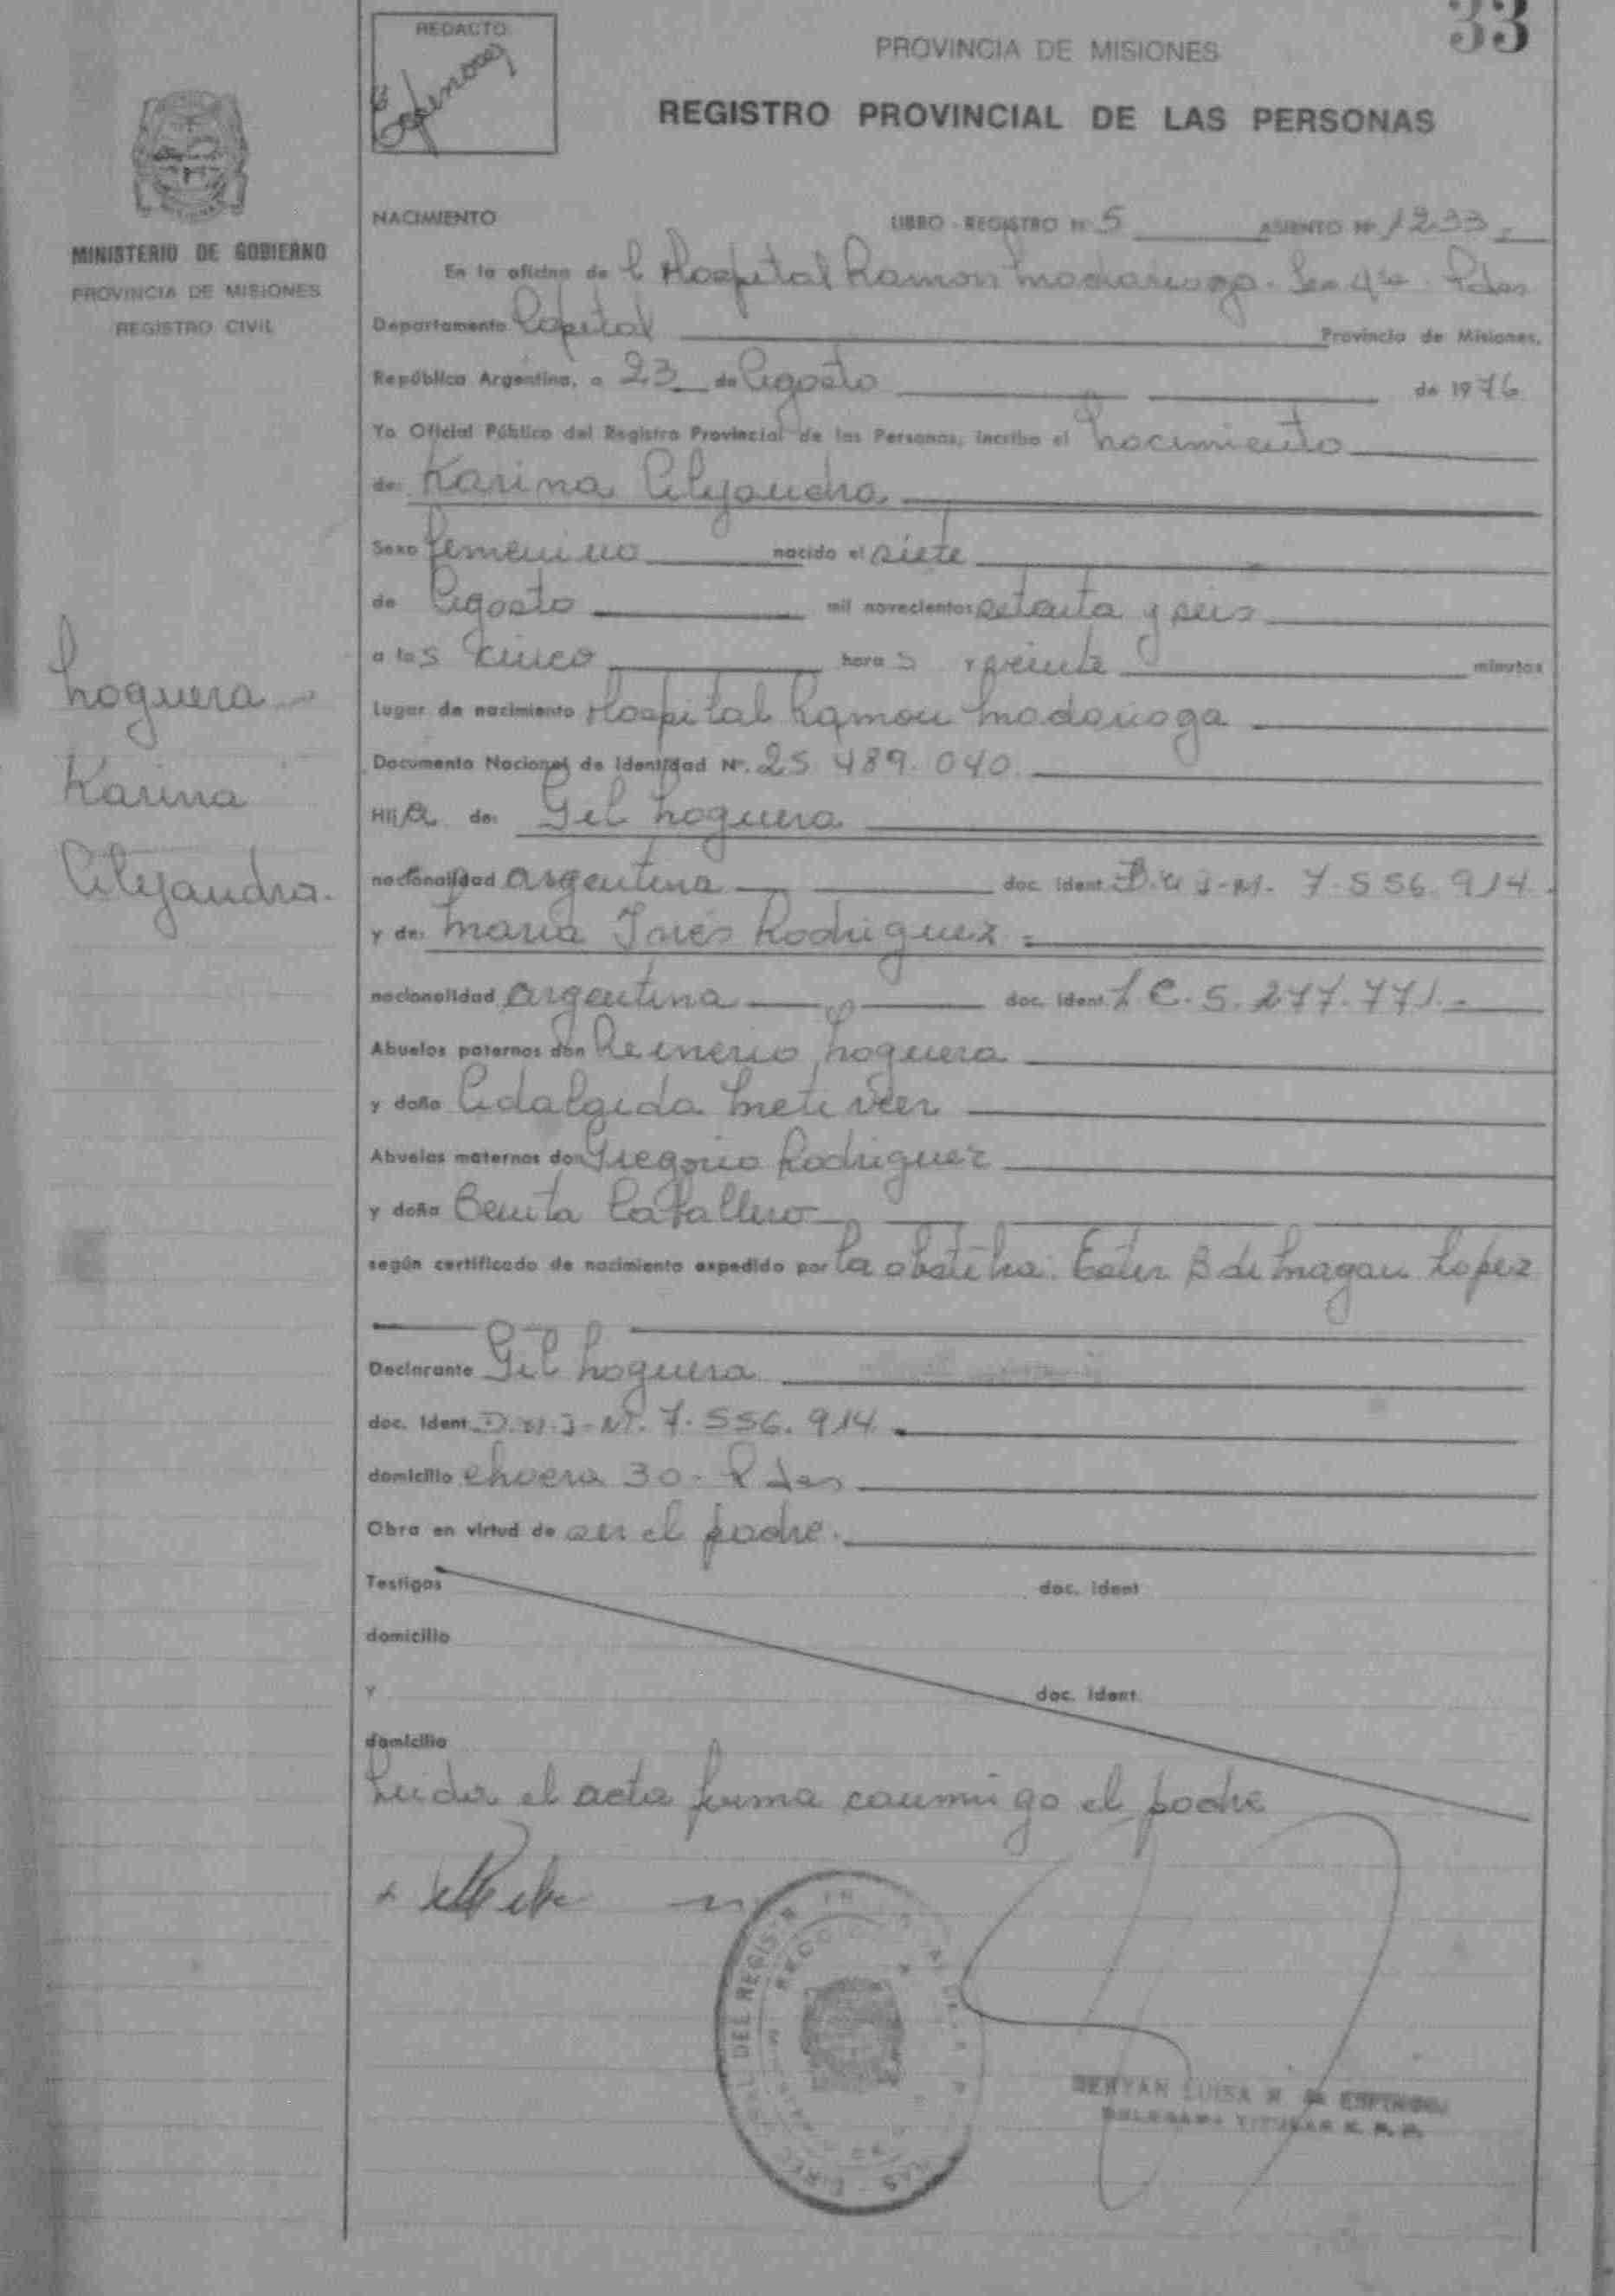 33
REDACTO
PROVINCIA DE MISIONES
REGISTRO PROVINCIAL DE LAS PERSONAS
MINISTERIO DE GOBIERNO
PROVINCIA DE MISIONES
REGISTRO CIVIL
NACIMIENTO LIBRO - REGISTRO Nº 5 ASIENTO Nº 1233
En la oficina de l Hospital Ramon Madariaga. Sec 4ta. Pdas
Departamento Capital Provincia de Misiones,
República Argentina, a 23 de Agosto de 1976
Yo Oficial Público del Registro Provincial de las Personas, inscribo el Nacimiento
de: Karina Alejandra
Sexo femenino nacido el siete
de Agosto mil novecientos setenta y seis
a las cinco horas y veinte minutos
Noguera
Karina
Alejandra.
Lugar de nacimiento Hospital Ramon Madariaga
Documento Nacional de Identidad Nº. 25.489.040
Hija de: Gil Noguera
nacionalidad argentina doc. ident. D.N.I-M. 7.556.914
y de: Maria Inés Rodriguez
nacionalidad argentina doc. ident. L.C. 5.277.771.-
Abuelos paternos don Reinerio Noguera
y doña Adalgida Metivier
Abuelos maternos don Gregorio Rodriguez
y doña Benita Caballero
según certificado de nacimiento expedido por la obstetra: Ester B de Magan Lopez
Declarante Gil Noguera
doc. ident. D.N.I-M. 7.556.914.
domicilio chacra 30 - Pdas
Obra en virtud de ser el padre.
Testigos doc. ident
domicilio
y doc. ident.
domicilio
Leida el acta firma conmigo el padre
DEL REGIS
LUISA
TITULAR R. P. P.